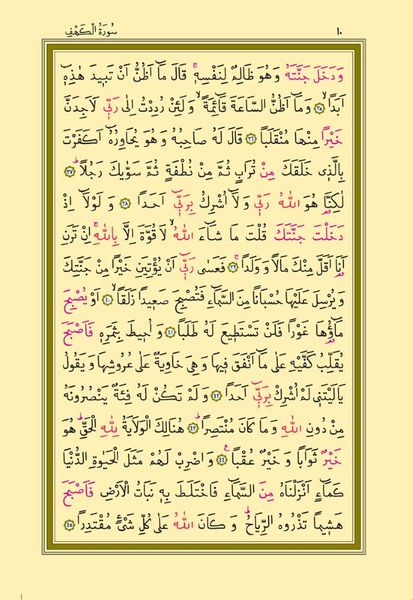 سُورَةُ الْكَهْفِ ١٠
وَدَخَلَ جَنَّتَهُ وَهُوَ ظَالِمٌ لِنَفْسِهِۚ قَالَ مَٓا اَظُنُّ اَنْ تَب۪يدَ هٰذِه۪ٓ
اَبَدًاۙ ﴿٣٥﴾ وَمَٓا اَظُنُّ السَّاعَةَ قَٓائِمَةًۙ وَلَئِنْ رُدِدْتُ اِلٰى رَبّ۪ي لَاَجِدَنَّ
خَيْرًا مِنْهَا مُنْقَلَبًا ﴿٣٦﴾ قَالَ لَهُ صَاحِبُهُ وَهُوَ يُحَاوِرُهُٓ اَكَفَرْتَ
بِالَّذ۪ي خَلَقَكَ مِنْ تُرَابٍ ثُمَّ مِنْ نُطْفَةٍ ثُمَّ سَوّٰيكَ رَجُلًاۜ ﴿٣٧﴾
لٰكِنَّا۬ هُوَ اللّٰهُ رَبّ۪ي وَلَٓا اُشْرِكُ بِرَبّ۪ٓي اَحَدًا ﴿٣٨﴾ وَلَوْلَٓا اِذْ
دَخَلْتَ جَنَّتَكَ قُلْتَ مَا شَٓاءَ اللّٰهُۙ لَا قُوَّةَ اِلَّا بِاللّٰهِۚ اِنْ تَرَنِ
اَنَا۬ اَقَلَّ مِنْكَ مَالًا وَوَلَدًاۚ ﴿٣٩﴾ فَعَسٰى رَبّ۪ٓي اَنْ يُؤْتِيَنِ خَيْرًا مِنْ جَنَّتِكَ
وَيُرْسِلَ عَلَيْهَا حُسْبَانًا مِنَ السَّمَٓاءِ فَتُصْبِحَ صَع۪يدًا زَلَقًاۙ ﴿٤٠﴾ اَوْ يُصْبِحَ
مَٓاؤُ۬هَا غَوْرًا فَلَنْ تَسْتَط۪يعَ لَهُ طَلَبًا ﴿٤١﴾ وَاُح۪يطَ بِثَمَرِه۪ فَاَصْبَحَ
يُقَلِّبُ كَفَّيْهِ عَلٰى مَٓا اَنْفَقَ ف۪يهَا وَهِيَ خَاوِيَةٌ عَلٰى عُرُوشِهَا وَيَقُولُ
يَالَيْتَن۪ي لَمْ اُشْرِكْ بِرَبّ۪ٓي اَحَدًا ﴿٤٢﴾ وَلَمْ تَكُنْ لَهُ فِئَةٌ يَنْصُرُونَهُ
مِنْ دُونِ اللّٰهِ وَمَا كَانَ مُنْتَصِرًاۜ ﴿٤٣﴾ هُنَالِكَ الْوَلَايَةُ لِلّٰهِ الْحَقِّۜ هُوَ
خَيْرٌ ثَوَابًا وَخَيْرٌ عُقْبًا۟ ﴿٤٤﴾ وَاضْرِبْ لَهُمْ مَثَلَ الْحَيٰوةِ الدُّنْيَا
كَمَٓاءٍ اَنْزَلْنَاهُ مِنَ السَّمَٓاءِ فَاخْتَلَطَ بِه۪ نَبَاتُ الْاَرْضِ فَاَصْبَحَ
هَش۪يمًا تَذْرُوهُ الرِّيَاحُۜ وَكَانَ اللّٰهُ عَلٰى كُلِّ شَيْءٍ مُقْتَدِرًا ﴿٤٥﴾